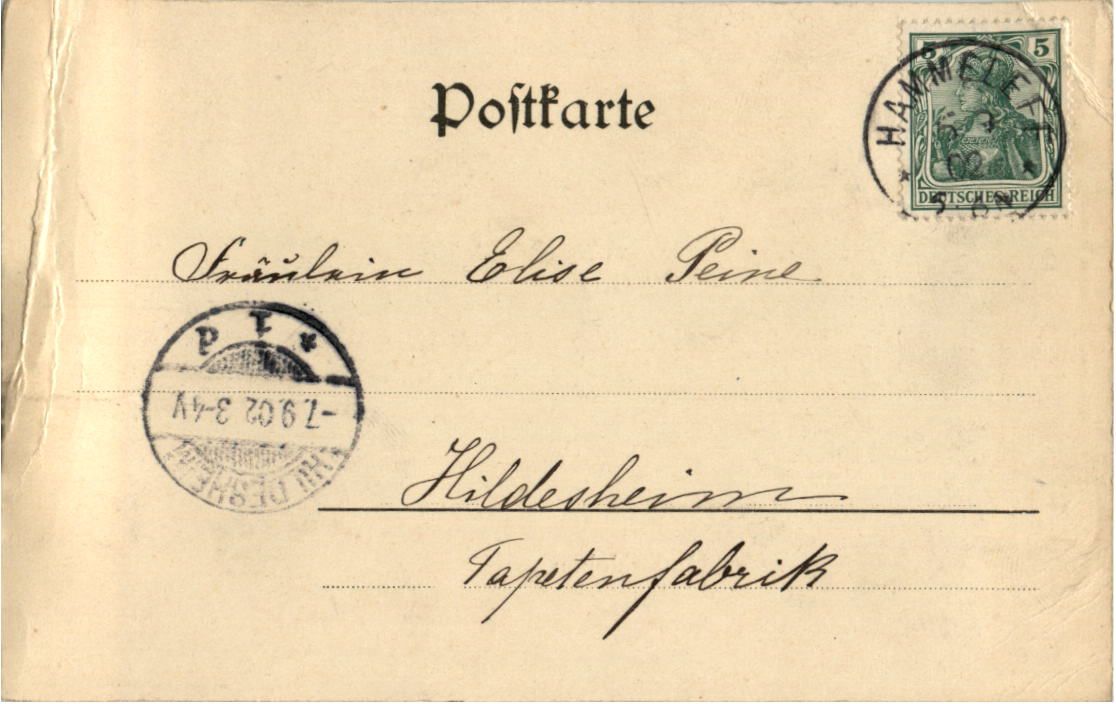 Postkarte
5 5
HAMMELEFF
5. 9
02
5-6N
DEUTSCHES REICH
Fräulein Elise Peine
* 1 d
-7.9.02 3-4V
HILDESHEIM
Hildesheim
Tapetenfabrik